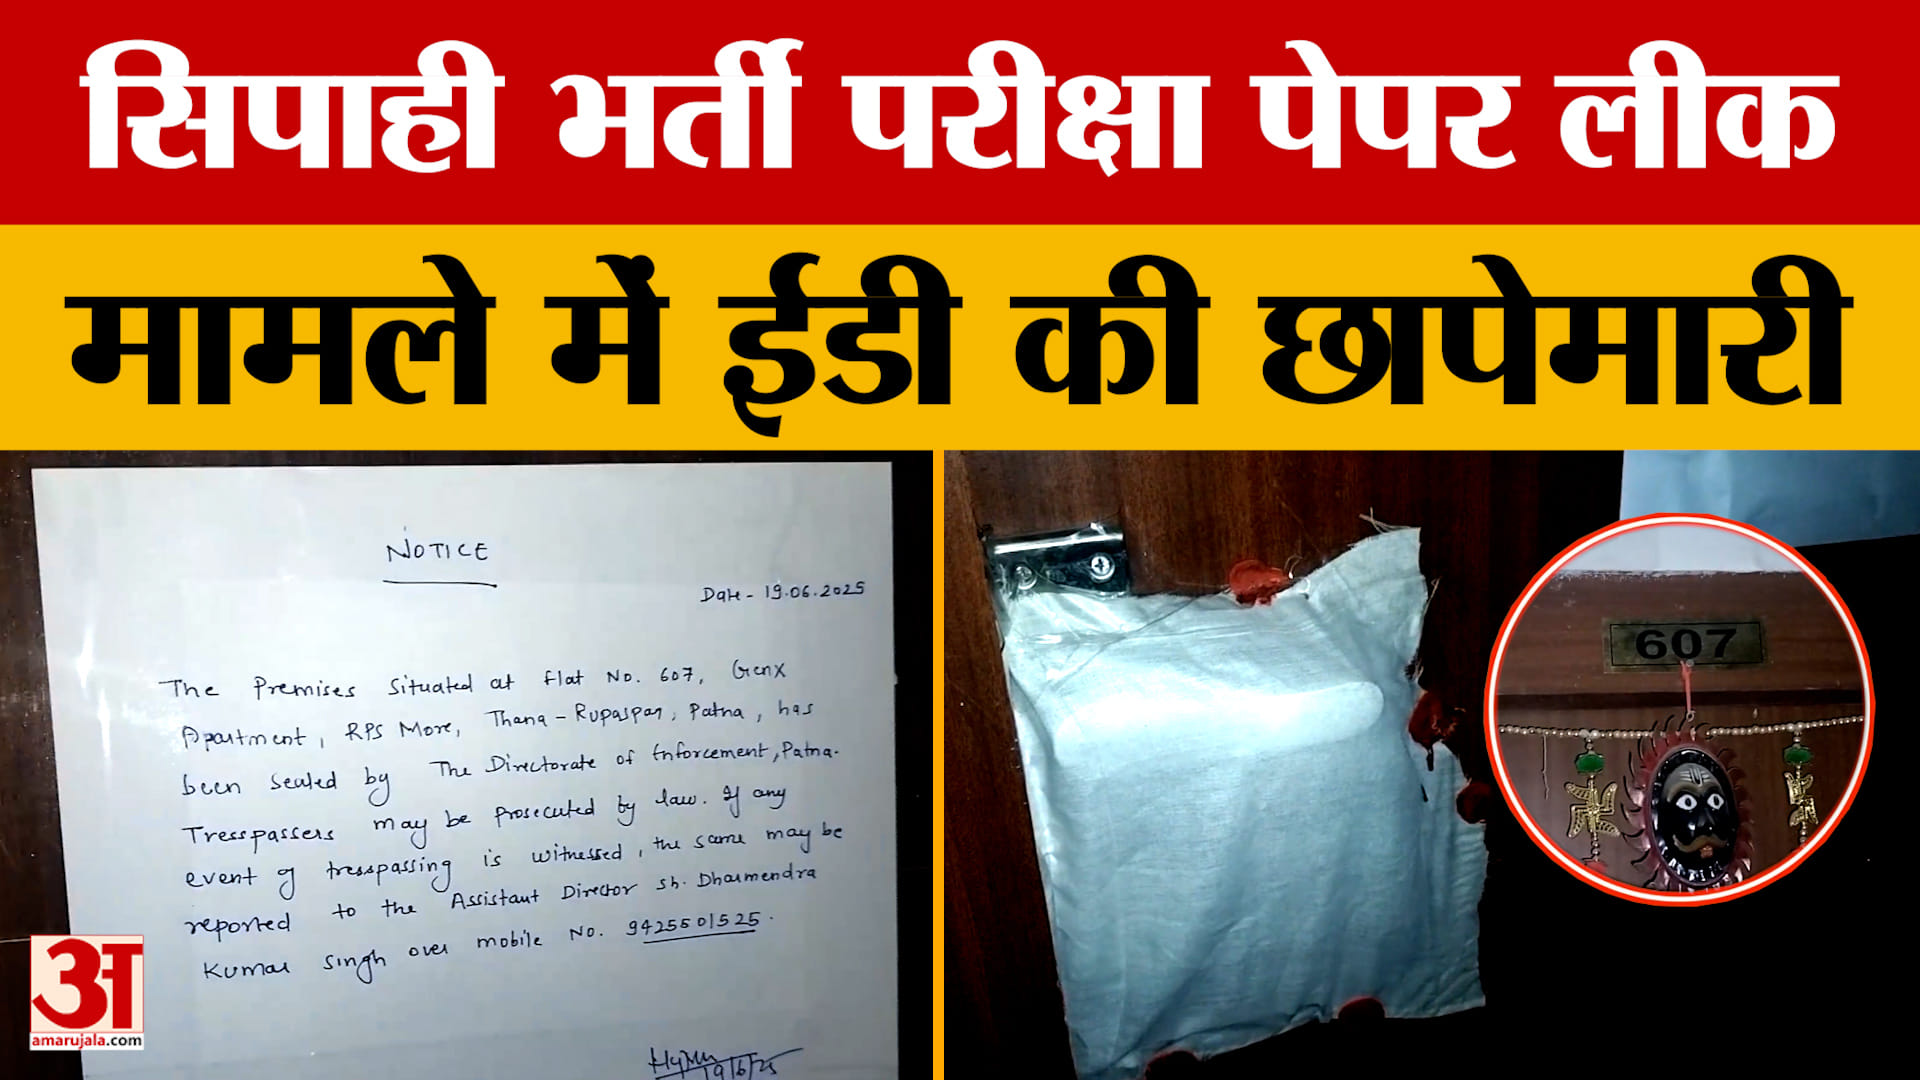 सिपाही भर्ती परीक्षा पेपर लीक
मामले में ईडी की छापेमारी
NOTICE
Date - 19.06.2025
The Premises Situated at flat No. 607, Genx
Apartment, RPS More, Thana - Rupaspar, Patna, has
been sealed by The Directorate of Enforcement, Patna.
Tresspassers may be prosecuted by law. If any
event of tresspassing is witnessed, the same may be
reported to the Assistant Director Sh. Dharmendra
Kumar Singh over mobile No. 9425501525.
19/6/25
607
अ
amarujala.com